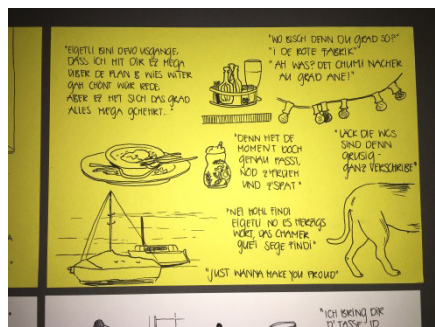 "EIGETLI BINI DEVO USGANGE,
DASS ICH MIT DIR EZ MEGA
ÜBER DE PLAN B WIES WITER
GAH CHÖNT WÜR REDE.
ABER EZ HET SICH DAS GRAD
ALLES MEGA GCHEHRT."
"WO BISCH DENN DU GRAD SO?"
"I DE ROTE FABRIK"
"AH WAS? DET CHUMI NACHER
AU GRAD ANE!"
"DENN HET DE
MOMENT DOCH
GENAU PASST,
NÖD Z'FRUEH
UND Z'SPAT"
"LÄCK DIE WCS
SIND DENN
GRUSIG -
GANZ VERSCHRIBE"
"NEI MOHL FINDI
EIGETLI NO ES HERZIGS
WORT, DAS CHAMER
GUET SEGE FINDI"
"JUST WANNA MAKE YOU PROUD"
"ICH BRING DIR
D'TASSE